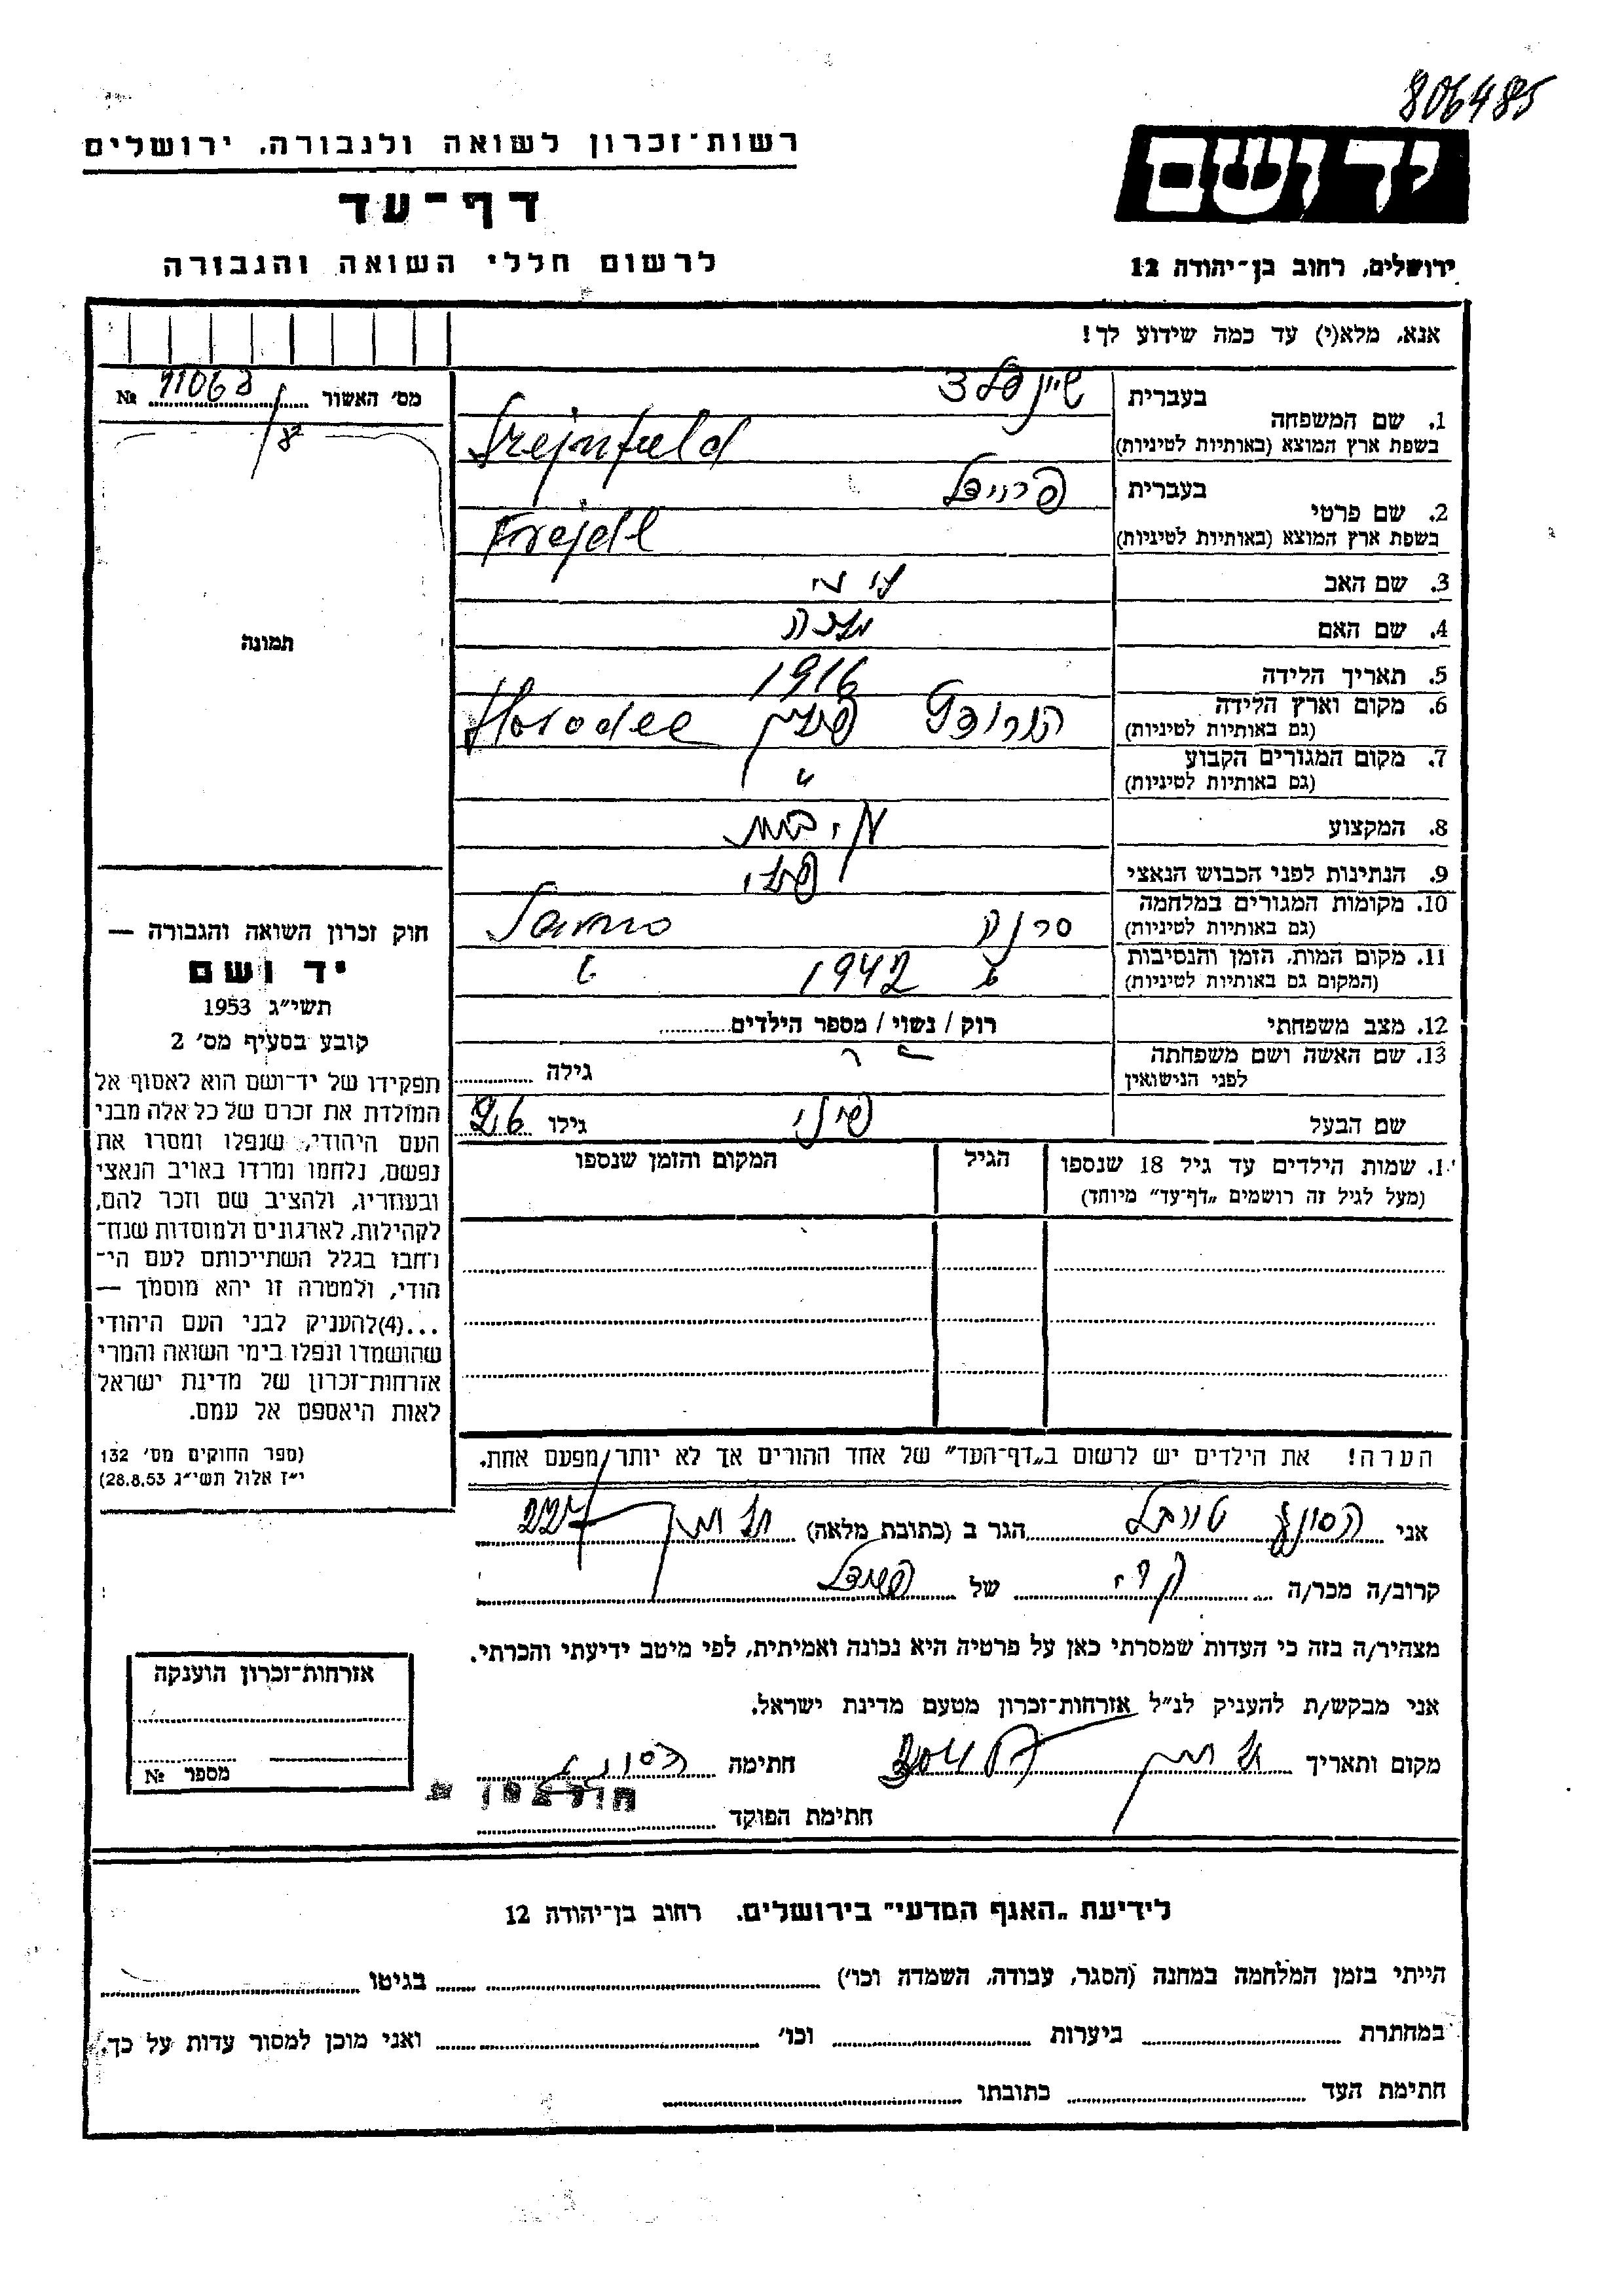 806485
רשות־זכרון לשואה ולגבורה, ירושלים
יד ושם
דף־עד
לרשום חללי השואה והגבורה
ירושלים, רחוב בן־יהודה 12
אנא, מלא(י) עד כמה שידוע לך!
מס׳ האשור 91063 №
1. שם המשפחה
בעברית שיינפלד
בשפת ארץ המוצא (באותיות לטיניות) Szejnfeld
2. שם פרטי
בעברית פריידל
בשפת ארץ המוצא (באותיות לטיניות) Frejdl
3. שם האב
4. שם האם
5. תאריך הלידה 1916
6. מקום וארץ הלידה
(גם באותיות לטיניות) פולין Horodec
7. מקום המגורים הקבוע "
(גם באותיות לטיניות)
8. המקצוע
9. הנתינות לפני הכבוש הנאצי פולני
10. מקומות המגורים במלחמה
(גם באותיות לטיניות) סרנה Sarno
11. מקום המות, הזמן והנסיבות
(המקום גם באותיות לטיניות) " 1942 "
12. מצב משפחתי רוק / נשוי / מספר הילדים
13. שם האשה ושם משפחתה
לפני הנישואין גילה
שם הבעל גילו 26
1. שמות הילדים עד גיל 18 שנספו הגיל המקום והזמן שנספו
(מעל לגיל זה רושמים „דף־עד" מיוחד)
תמונה
חוק זכרון השואה והגבורה —
יד ושם
תשי״ג 1953
קובע בסעיף מס׳ 2
תפקידו של יד־ושם הוא לאסוף אל
המולדת את זכרם של כל אלה מבני
העם היהודי, שנפלו ומסרו את
נפשם, נלחמו ומרדו באויב הנאצי
ובעוזריו, ולהציב שם וזכר להם,
לקהילות, לארגונים ולמוסדות שנח־
רבו בגלל השתייכותם לעם הי־
הודי, ולמטרה זו יהא מוסמך —
...(4)להעניק לבני העם היהודי
שהושמדו ונפלו בימי השואה והמרי
אזרחות־זכרון של מדינת ישראל
לאות היאספם אל עמם.
(ספר החוקים מס׳ 132
י״ז אלול תשי״ג 28.8.53)
הערה! את הילדים יש לרשום ב„דף־העד" של אחד ההורים אך לא יותר מפעם אחת.
אני הגר ב (כתובת מלאה)
קרוב/ה מכר/ה של
מצהיר/ה בזה כי העדות שמסרתי כאן על פרטיה היא נכונה ואמיתית, לפי מיטב ידיעתי והכרתי.
אני מבקש/ת להעניק לנ״ל אזרחות־זכרון מטעם מדינת ישראל.
מקום ותאריך חתימה
חתימת הפוקד
אזרחות־זכרון הוענקה
מספר №
לידיעת „האגף המדעי" בירושלים. רחוב בן־יהודה 12
הייתי בזמן המלחמה במחנה (הסגר, עבודה, השמדה וכו׳) בגיטו
במחתרת ביערות וכו׳ ואני מוכן למסור עדות על כך.
חתימת העד כתובתו